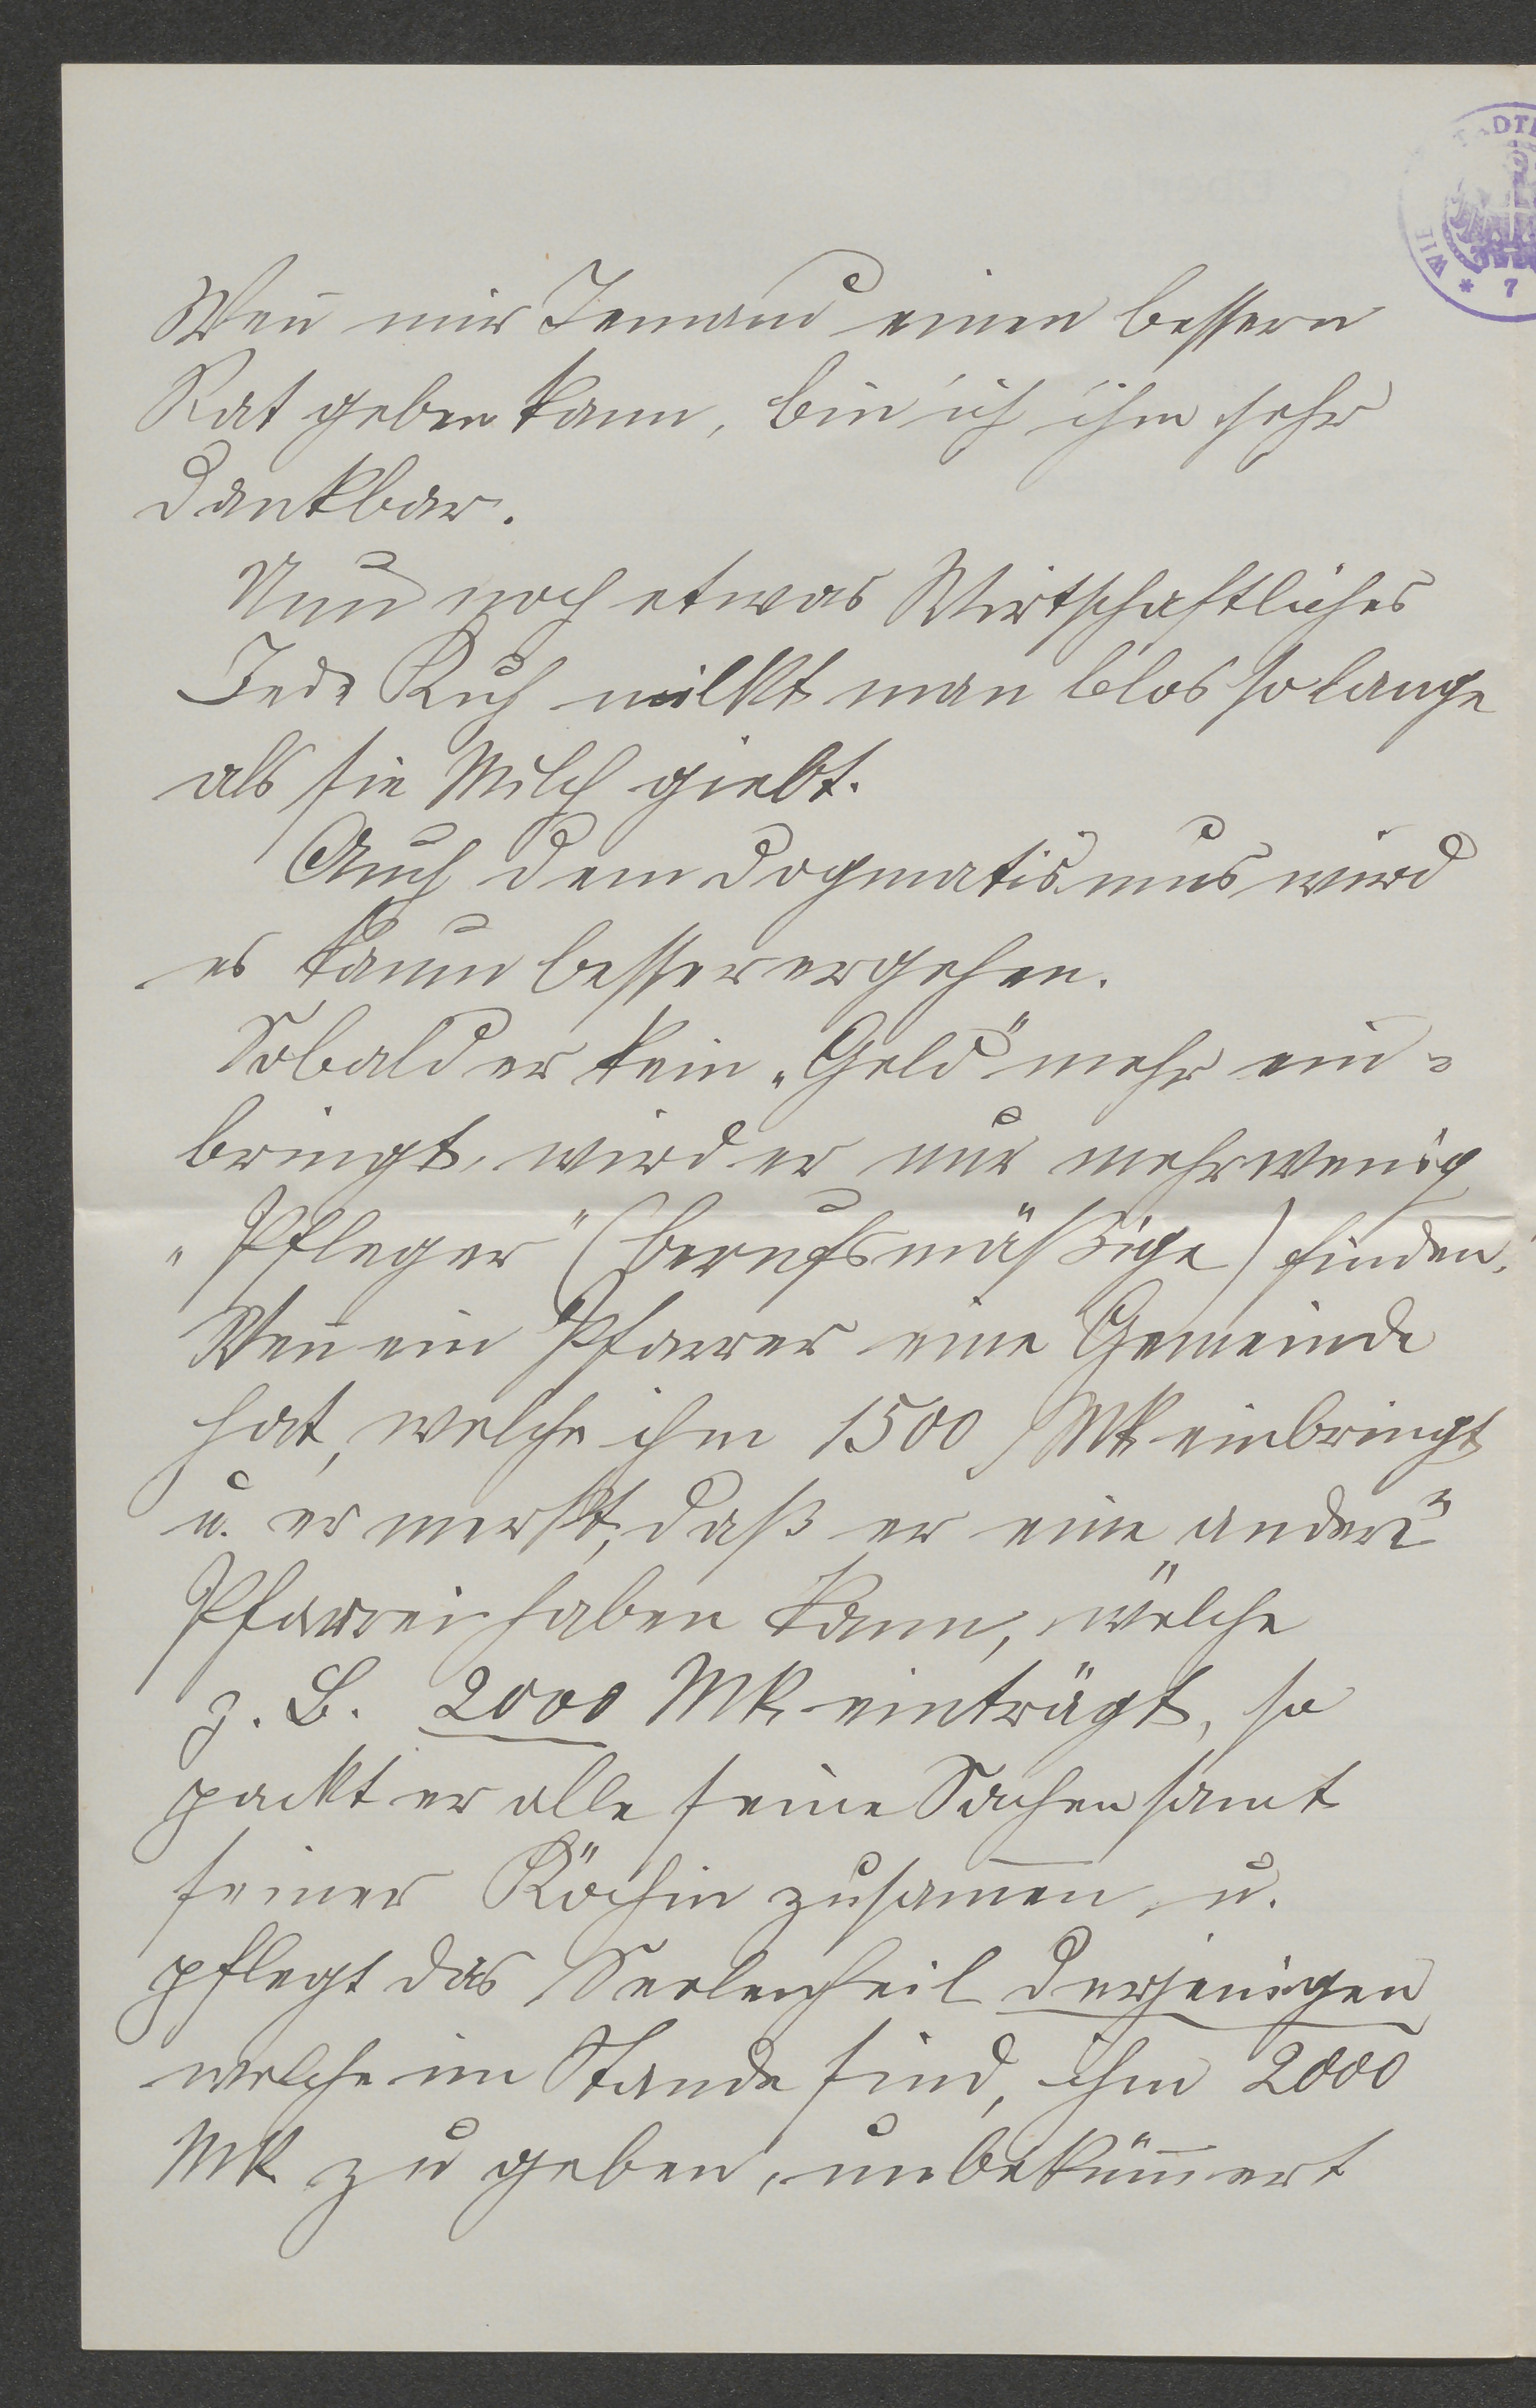 Weñ mir Jemand einen bessern
Rat geben kann, bin ich ihm sehr
dankbar.
Nun noch etwas Wirtschaftliches
Jede Kuh milkt man blos so lange
als sie Milch giebt.
Auch dem Dogmatismus wird
es kaum besser ergehen.
Sobald er kein „Geld“ mehr ein=
bringt, wird er nur mehr wenig
„Pfleger“ (berufsmäßige) finden.
Weñ ein Pfarrer eine Gemeinde
hat, welche ihm 1500 Mk einbringt
u. er merkt, daß er eine andere
Pfarrei haben kann, welche
z. B. 2000 Mk einträgt, so
packt er alle seine Sachen samt
seiner Köchin zusam̄en u.
pflegt das Seelenheil derjenigen
welche im Stande sind, ihm 2000
Mk zu geben, unbeküm̄ert
ADT
WIE
* 7